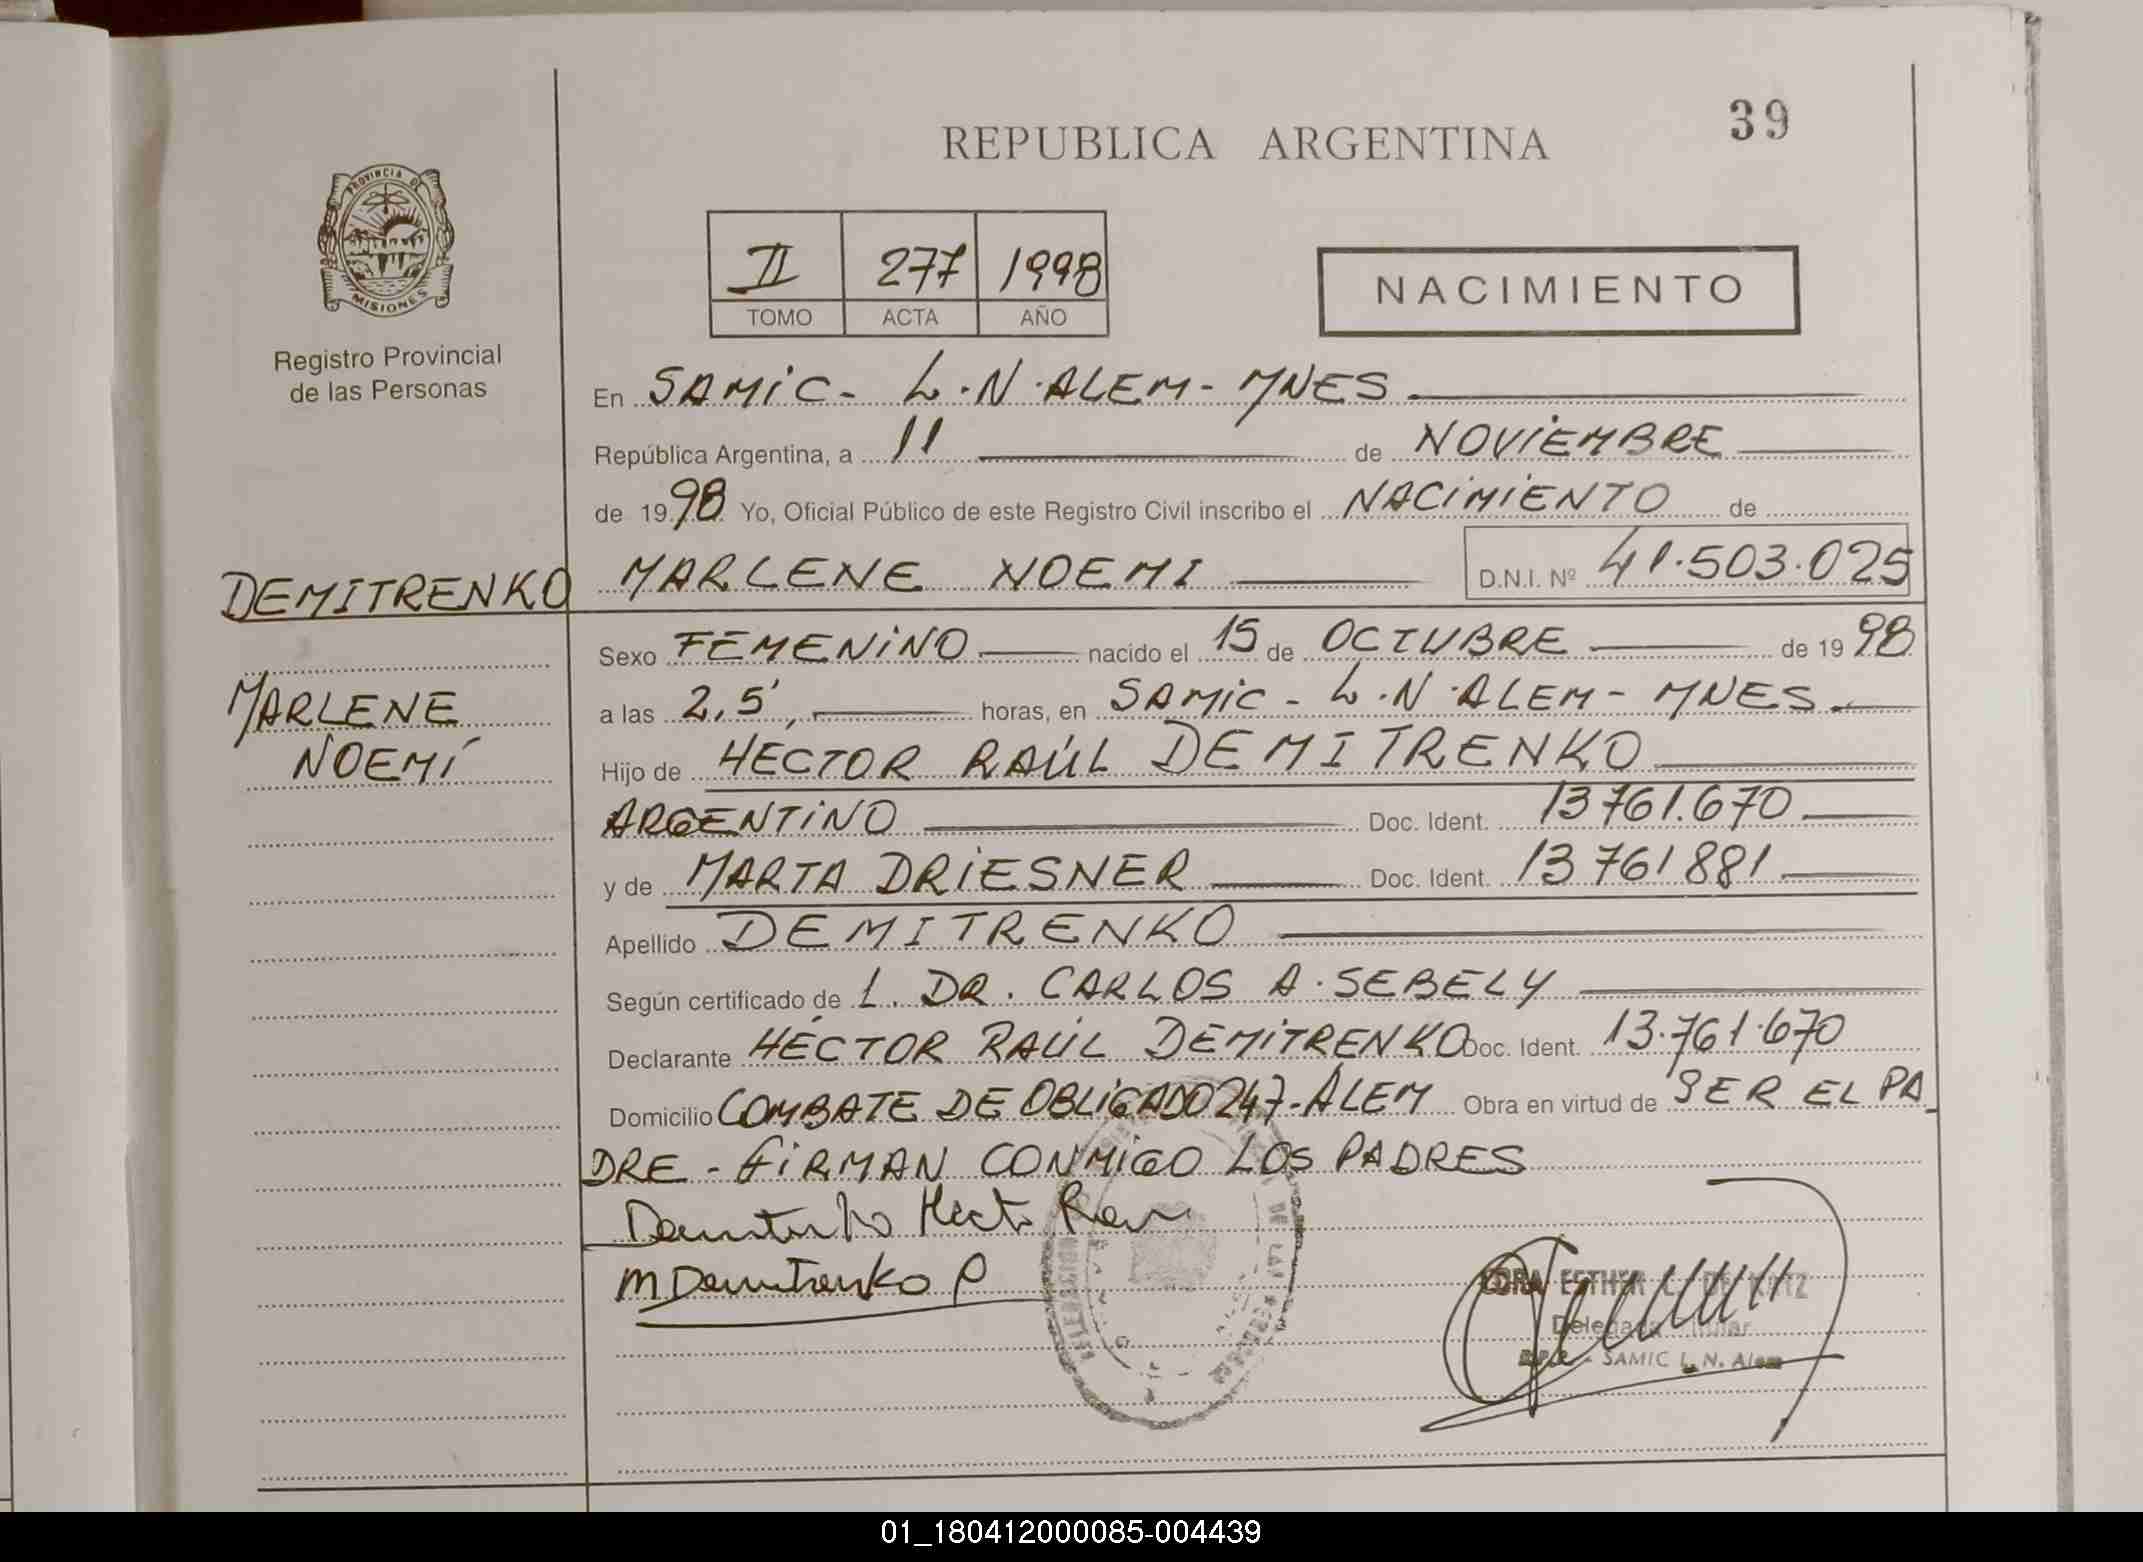 39
REPUBLICA ARGENTINA
PROVINCIA DE
MISIONES
Registro Provincial
de las Personas
II 277 1998
TOMO ACTA AÑO
NACIMIENTO
En SAMIC - L.N. ALEM - MNES
República Argentina, a 11 de NOVIEMBRE
de 1998 Yo, Oficial Público de este Registro Civil inscribo el NACIMIENTO de
DEMITRENKO MARLENE NOEMI D.N.I. Nº 41.503.025
Sexo FEMENINO nacido el 15 de OCTUBRE de 1998
MARLENE a las 2,5', horas, en SAMIC - L.N. ALEM - MNES.
NOEMÍ Hijo de HECTOR RAÚL DEMITRENKO
ARGENTINO Doc. Ident. 13761.670
y de MARTA DRIESNER Doc. Ident. 13761881
Apellido DEMITRENKO
Según certificado de L. DR. CARLOS A. SEBELY
Declarante HÉCTOR RAÚL DEMITRENKO Doc. Ident. 13.761.670
Domicilio COMBATE DE OBLIGADO 247-ALEM Obra en virtud de SER EL PA_
DRE - FIRMAN CONMIGO LOS PADRES
M Demitrenko
ESTHER
Delegada Titular
SAMIC L. N. Alem
01_180412000085-004439